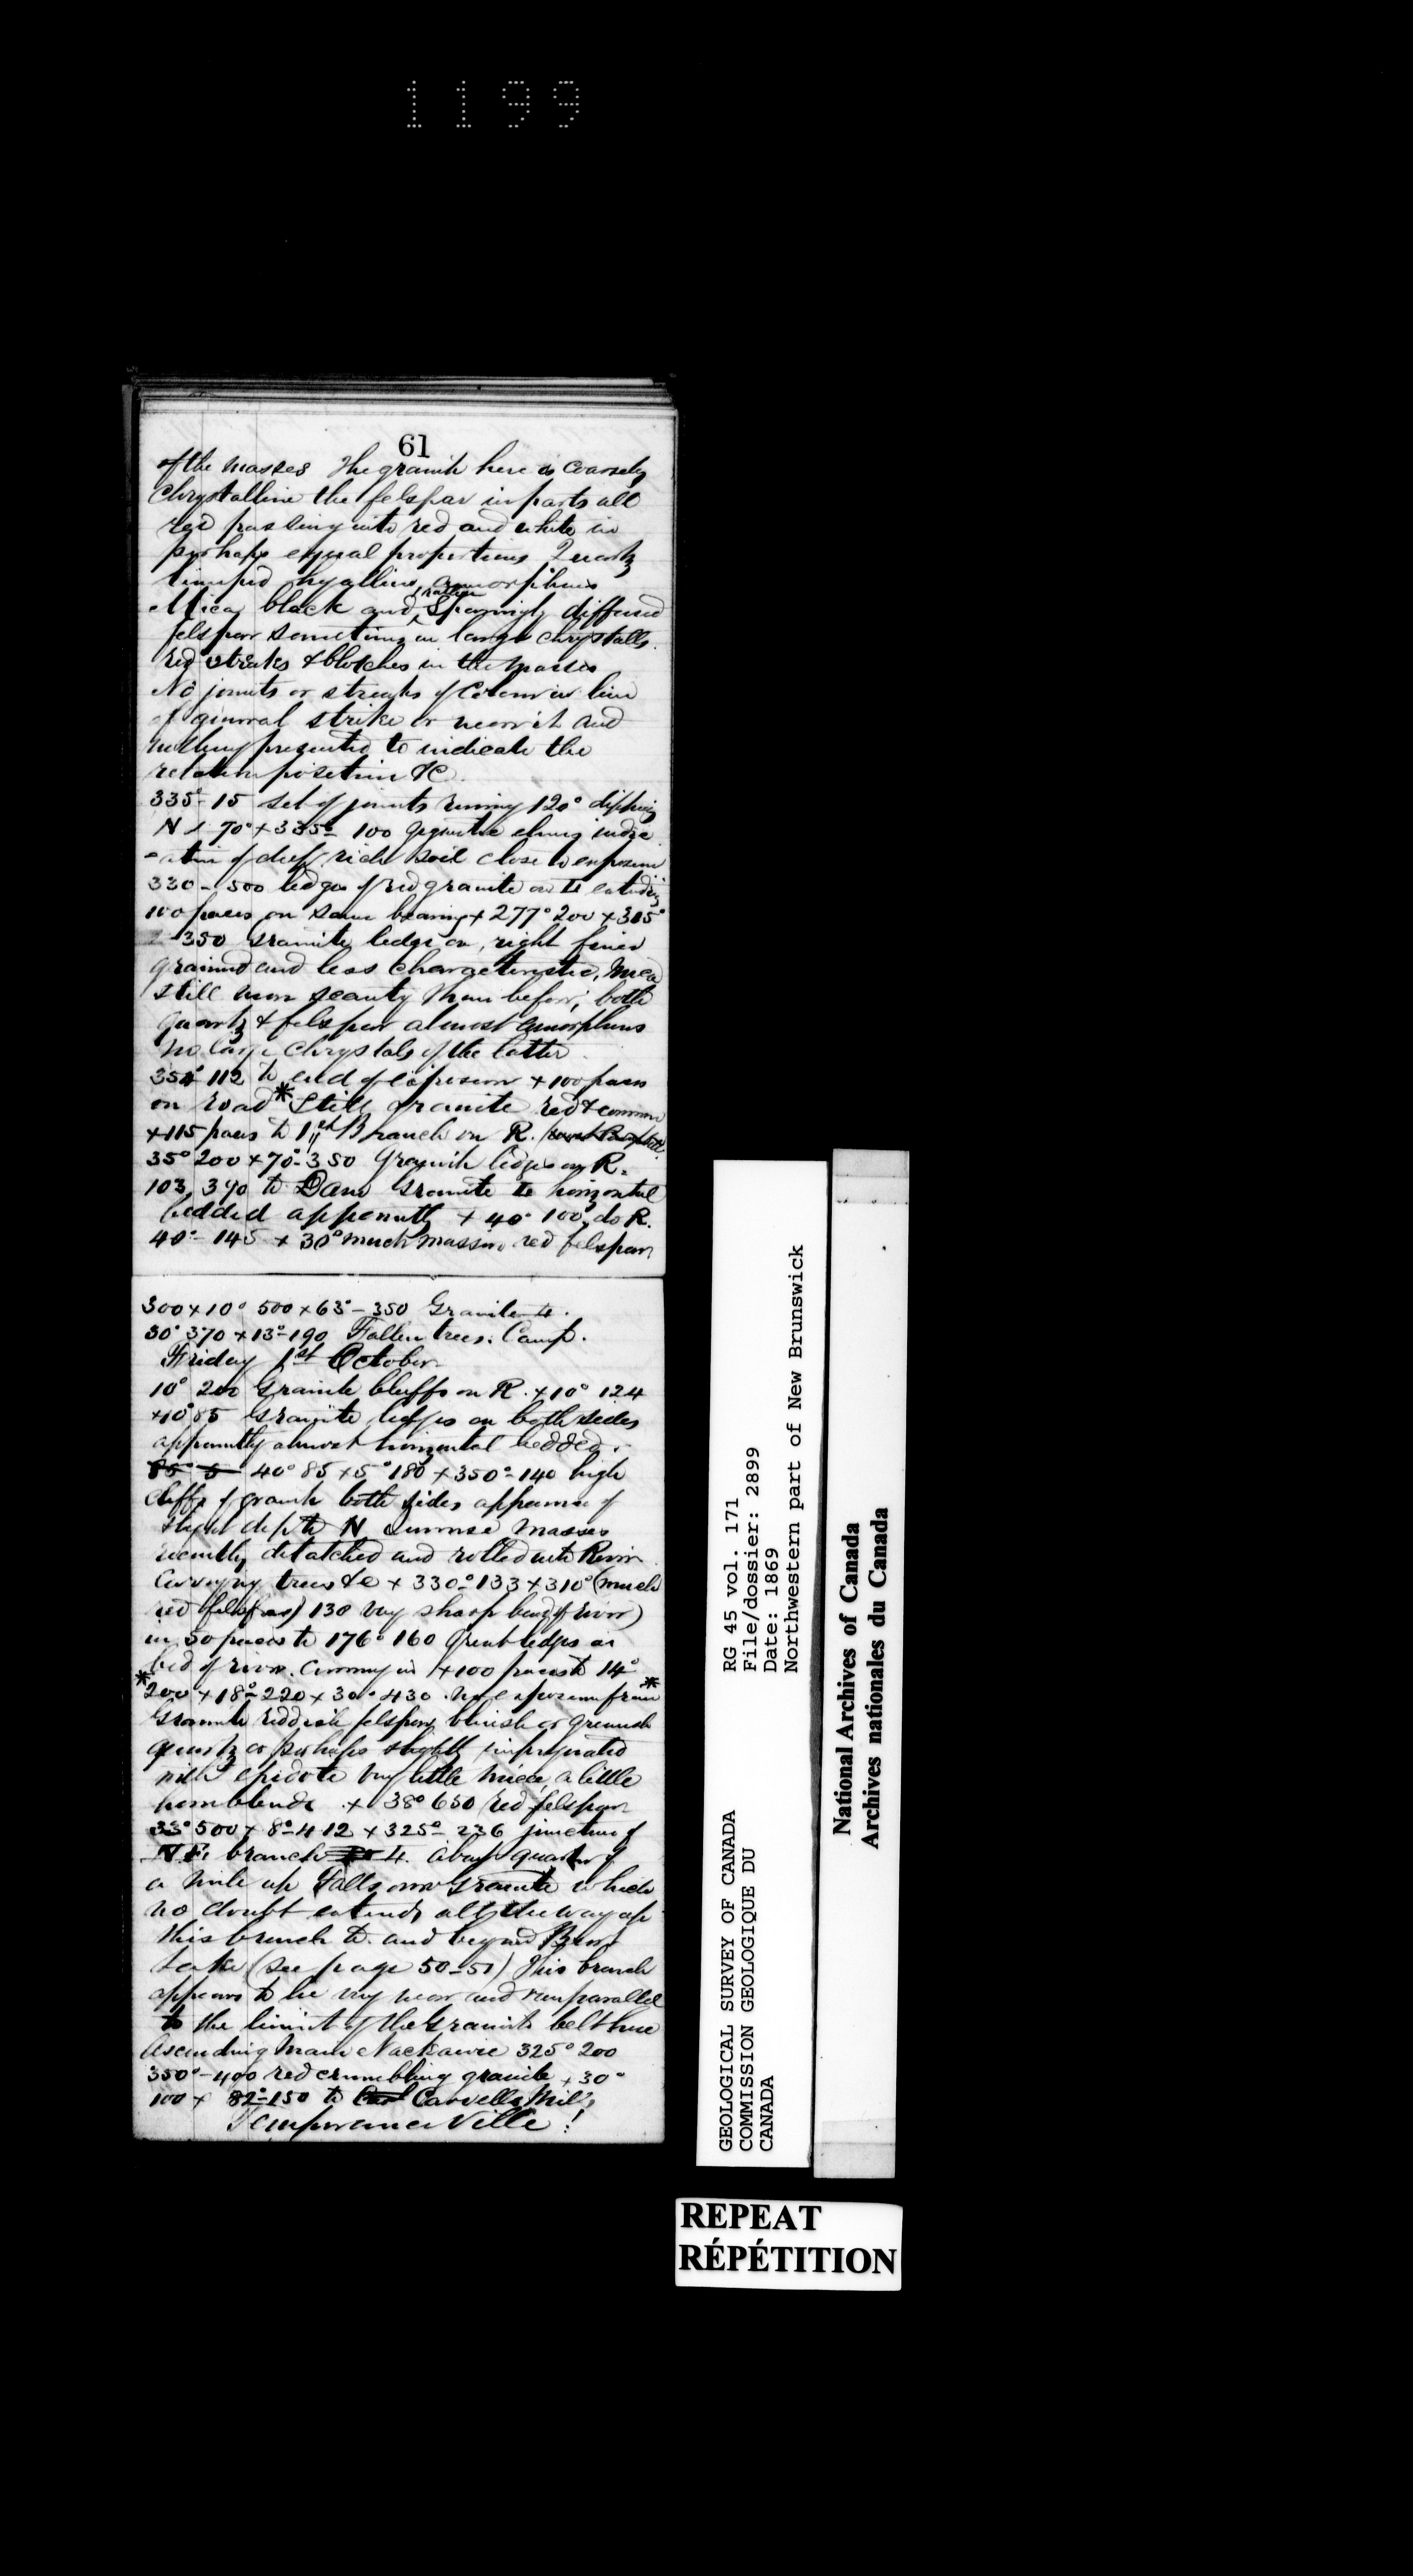 1199
61
of the masses The granite here is coarsely
Chrystalline the felspar in parts all
red passing into red and white in
perhaps equal proportions Quartz
limped hyalline, amorphous
rather
Mica black and sparingly diffused
felspar sometimes in large chrystalls.
red streaks & blotches in the masses
No joints or streaks of Colour in line
of general strike or near it and
nothing presented to indicate the
relation position &c.
335°- 15 set of joints running 120° dipping
N 70° + 335°- 100 gigantic elms indic
-ation of deep rich soil close to exposure
330 - 500 ledges of red granite on extending
100 paces on same bearing + 277° 200 + 305°
350 Granite ledge on right finer
grained and less characteristic, Mica
still more scanty than before, both
quartz & felspar almost amorphous
no large chrystals of the latter.
354° 112 to end of exposure + 100 paces
on road * Still granite red & common
+ 115 paces to 1st Branch on R.
35° 200 + 70°- 350 Granite ledges on R.
103 390 to Dam Granite horizontal
bedded apparently + 40° 100 do R.
40°- 145 + 30° much massive red felspar
300 + 10° 500 + 63°- 350 Granite
30° 370 + 13°- 190 Fallen trees. Camp.
Friday 1st October
10° 200 Granite bluffs on R. + 10° 124
+10° 85 Granite ledges on both sides
apparently almost horizontal bedded.
85° 5 40° 85 + 5° 180 + 350°- 140 high
cliffs of granite both sides appearance of
slight dip to N immense masses
recently detatched and rolled into River
Carrying trees &c + 330°- 133 + 310° (much
red felspar) 130 very sharp bend of river)
in 50 paces to 176° 160 Great ledges in
bed of river. + 100 paces to 14°
* 200 + 18°- 220 + 30° 430. *
Granite reddish felspar bluish or greenish
quartz or perhaps slightly impregnated
with epidote very little mica, a little
hornblende. + 38° 650 red felspar
33° 500 + 8°- 412 + 325°- 236 junction of
N.E. branch 4. about quarter of
a mile up Falls over Granite which
no doubt extends all the way up
this branch to and beyond
Lake (see page 50-51) This branch
appears to be very near and run parallel
to the limit of the Granite belt here
Ascending Main Nackawic 325° 200
350°- 400 red crumbling granite + 30°
100 + 82°- 150 to Carvells Mills
Temperance Ville!
GEOLOGICAL SURVEY OF CANADA
COMMISSION GEOLOGIQUE DU
CANADA
RG 45 vol. 171
File/dossier: 2899
Date: 1869
Northwestern part of New Brunswick
National Archives of Canada
Archives nationales du Canada
REPEAT
RÉPÉTITION